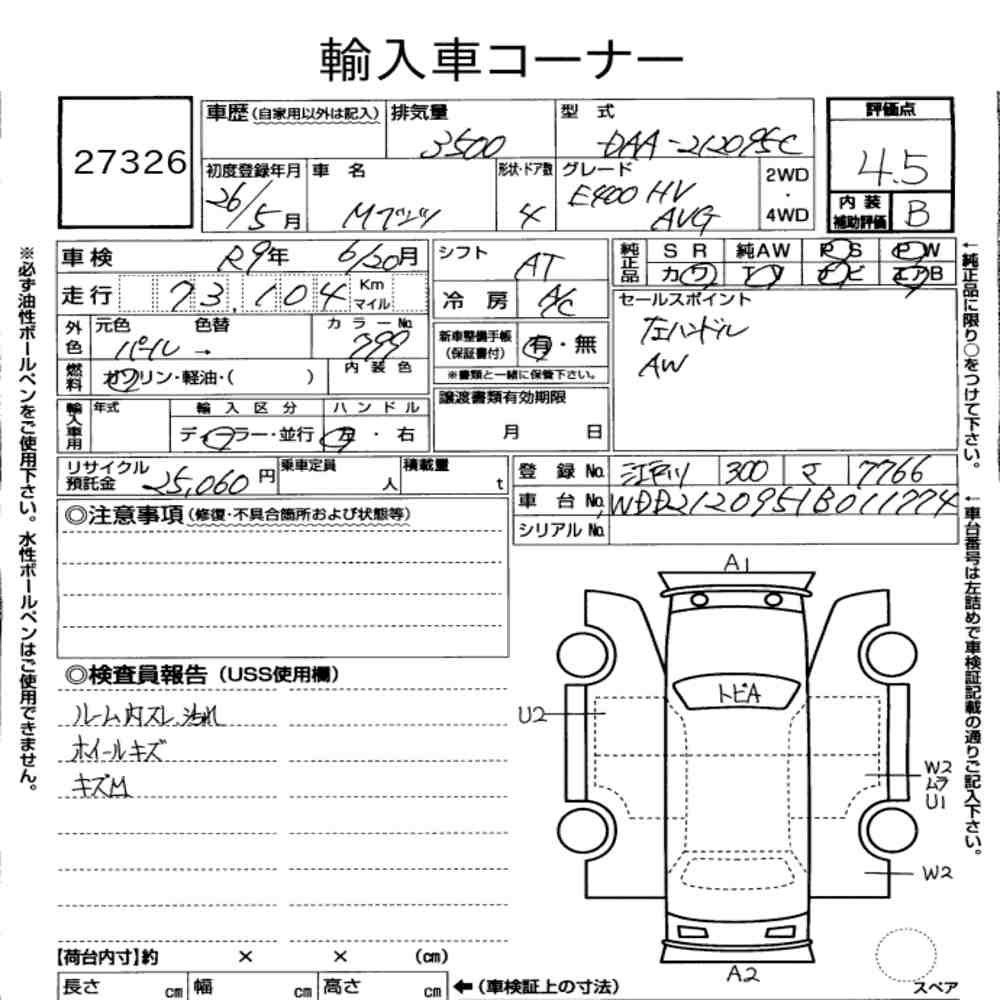 輸入車コーナー
27326
車歴(自家用以外は記入) 排気量 3500 型式 DAA-212095C 評価点 4.5
初度登録年月 26/5月 車名 Mブンツ 形状・ドア数 4 グレード E400 HV AVG 2WD・4WD 内装補助評価 B
車検 R9年 6/20月 シフト AT
走行 73,104 Km マイル 冷房 A/C
純正品 SR 純AW PS PW
カワ エアB
セールスポイント
左ハンドル
AW
外色 元色 パール → 色替 カラーNo. 799
燃料 ガソリン・軽油・( ) 内装色
新車整備手帳(保証書付) 有・無
※書類と一緒に保管下さい。
輸入車用 年式 輸入区分 ハンドル
ディーラー・並行 左・右
譲渡書類有効期限
月 日
リサイクル預託金 25,060円 乗車定員 人 積載量 t
登録No. 江戸川 300 マ 7766
車台No. WDD2120951B011774
シリアルNo.
◎注意事項(修復・不具合箇所および状態等)
◎検査員報告(USS使用欄)
ルーム内スレ、汚れ
ホイールキズ
キズM
A1
トビA
U2
W2
ムラ
U1
W2
A2
スペア
【荷台内寸】約 × × (cm)
長さ cm 幅 cm 高さ cm ←(車検証上の寸法)
※必ず油性ボールペンをご使用下さい。水性ボールペンはご使用できません。
←純正品に限り○をつけて下さい。
←車台番号は左詰めで車検証記載の通りご記入下さい。